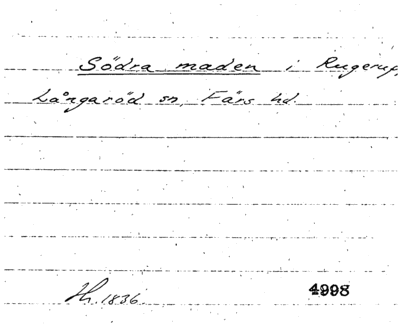 Södra maden i Rugerup,
Långaröd sn, Färs hd.
Hh. 1836.
4998